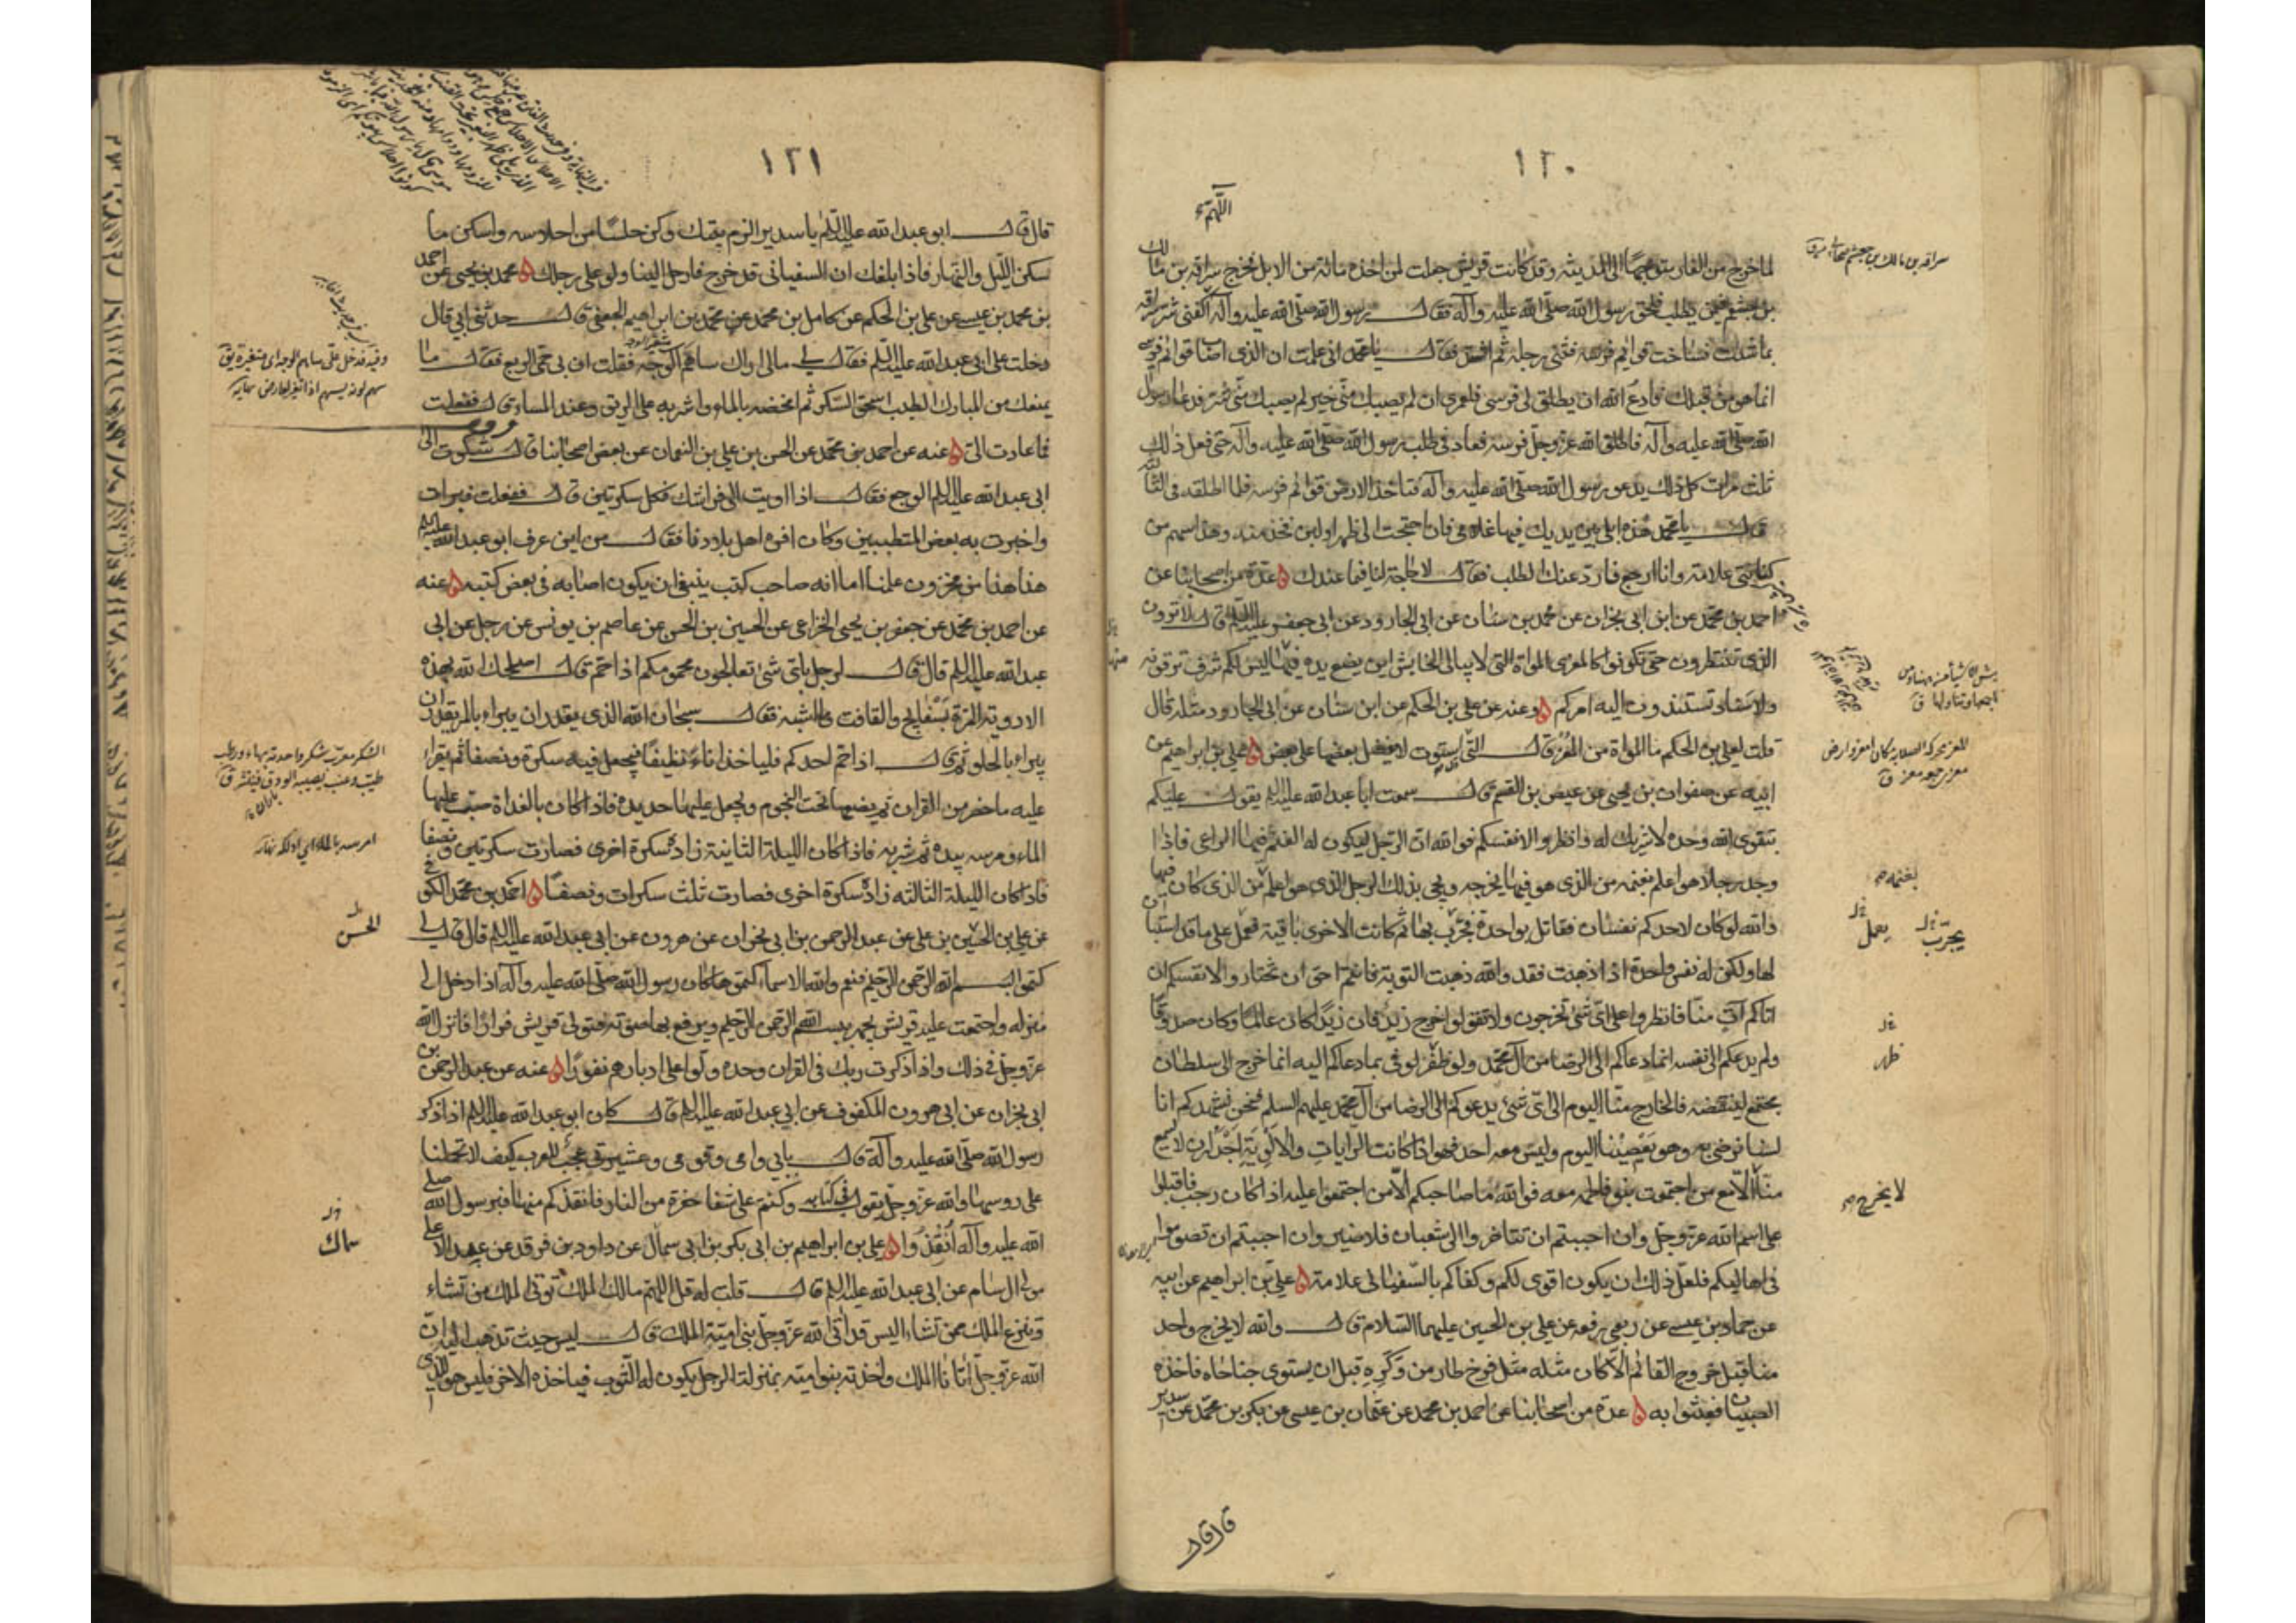 ١٢٠
اللّهمّ
لما خرج من الغار متوجهًا الى المدينة وقد كانت قريش جعلت لمن اخذه مائة من الابل فخرج سراقة بن مالك
بن جعشم فيمن يطلب فلحق برسول الله صلى الله عليه وآله فقال رسول الله صلى الله عليه وآله اكفنى شر سراقة
بما شئت فساخت قوائم فرسه فثنى رجله ثم اشتد فقال يا محمد انى علمت ان الذى اصاب قوائم فرسى
انما هو من قبلك فادع الله ان يطلق لى فرسى فلعمرى ان لم يصبك منى خير لم يصبك منى شر فدعا رسول
الله صلى الله عليه وآله فاطلق الله عز وجل فرسه فعاد فى طلب رسول الله صلى الله عليه وآله حتى فعل ذلك
ثلث مرات كل ذلك يدعو رسول الله صلى الله عليه وآله فتاخذ الارض قوائم فرسه فلما اطلقه فى الثالثة
قال يا محمد هذه ابلى بين يديك فيها غلامى فان احتجت الى ظهر او لبن فخذ منه وهذا سهم من
كنانتى علامة وانا ارجع فارد عنك الطلب فقال لا حاجة لنا فيما عندك ه عدة من اصحابنا عن
احمد بن محمد عن ابن ابى نجران عن محمد بن سنان عن ابى الجارود عن ابى جعفر عليه السلم قال لا ترون
الذى تنتظرون حتى تكونوا كالمعزى المواة التى لا يبالى الخابس اين يضع يده فيها ليس لكم شرف ترقونه
ولا سناد تسندون اليه امركم ه وعنه عن على بن الحكم عن ابن سنان عن ابى الجارود مثله قال
قلت لعلى بن الحكم ما المواة من المعز قال التى استوت لا يفضل بعضها على بعض ه على بن ابراهيم عن
ابيه عن صفوان بن يحيى عن عيص بن القسم قال سمعت ابا عبد الله عليه السلم يقول عليكم
بتقوى الله وحده لا شريك له وانظروا لانفسكم فوالله ان الرجل ليكون له الغنم فيها الراعى فاذا
وجد رجلا هو اعلم بغنمه من الذى هو فيها يخرجه ويجئ بذلك الرجل الذى هو اعلم من الذى كان فيها
والله لو كان لاحدكم نفسان فقاتل بواحدة فجرب بها ثم كانت الاخرى باقية فعمل على ما قد استبان
لها ولكن له نفس واحدة اذا ذهبت فقد والله ذهبت التوبة فانتم احق ان تختاروا لانفسكم ان
اتاكم آت منا فانظروا على اى شئ تخرجون ولا تقولوا خرج زيد فان زيدا كان عالما وكان صدوقا
ولم يدعكم الى نفسه انما دعاكم الى الرضا من آل محمد ولو ظفر لوفى بما دعاكم اليه انما خرج الى سلطان
مجتمع لينقضه فالخارج منا اليوم الى اى شئ يدعوكم الى الرضا من آل محمد عليهم السلم فنحن نشهدكم انا
لسنا نرضى به وهو يعصينا اليوم وليس معه احد فهو اذا كانت الرايات والالوية اجدر ان لا يسمع
منا الا مع من اجتمعت بنو فاطمة معه فوالله ما صاحبكم الا من اجتمعوا عليه اذا كان رجب فاقبلوا
على اسم الله عز وجل وان احببتم ان تتاخروا الى شعبان فلا ضير وان احببتم ان تصوموا
فى اهاليكم فلعل ذلك ان يكون اقوى لكم وكفاكم بالسفيانى علامة ه على بن ابراهيم عن ابيه
عن حماد بن عيسى عن ربعى رفعه عن على بن الحسين عليهما السلام قال والله لا يخرج واحد
منا قبل خروج القائم الا كان مثله مثل فرخ طار من وكره قبل ان يستوى جناحاه فاخذه
الصبيان فعبثوا به ه عدة من اصحابنا عن احمد بن محمد عن عثمان بن عيسى عن بكر بن محمد عن سدير
قال قال
سراقة بن مالك بن جعشم صحابى ق
بغنمه
يعمل
يجرّب
ظهر
لا يخرج
١٢١
قال قال ابو عبد الله عليه السلم يا سدير الزم بيتك وكن حلسًا من احلاسه واسكن ما
سكن الليل والنهار فاذا بلغك ان السفيانى قد خرج فارحل الينا ولو على رجلك ه محمد بن يحيى عن احمد
بن محمد بن عيسى عن على بن الحكم عن كامل بن محمد عن محمد بن ابراهيم الجعفى قال حدثنى ابى قال
دخلت على ابى عبد الله عليه السلم فقال لى مالى اراك ساهم الوجه فقلت ان بى حمى الربع فقال ما
يمنعك من المبارك الطيب اسحق السكر ثم امخضه بالماء واشربه على الريق وعند المساء قال ففعلت
فما عادت الى ه عنه عن احمد بن محمد عن الحسن بن على بن النعمان عن بعض اصحابنا قال شكوت الى
ابى عبد الله عليه السلم الوجع فقال اذا اويت الى فراشك فكل سكرتين قال ففعلت فبرات
واخبرت به بعض المتطببين وكان افره اهل بلادنا فقال من اين عرف ابو عبد الله عليه السلم
هذا هذا من مخزون علمنا اما انه صاحب كتب ينبغى ان يكون اصابه فى بعض كتبه ه عنه
عن احمد بن محمد عن جعفر بن يحيى الخزاعى عن الحسين بن الحسن عن عاصم بن يونس عن رجل عن ابى
عبد الله عليه السلم قال قال لرجل باى شئ تعالجون محمومكم اذا حم قال اصلحك الله بهذه
الادوية المرة بسفايج والغافت وما اشبهه فقال سبحان الله الذى يقدر ان يبراء بالمر يقدر ان
يبراء بالحلو ثم قال اذا حم احدكم فلياخذ اناءً نظيفًا فيجعل فيه سكرة ونصفا ثم يقراء
عليه ما حضر من القران ثم يضعها تحت النجوم ويجعل عليها حديدة فاذا كان بالغداة صب عليها
الماء ومرسه بيده ثم شربه فاذا كان الليلة الثانية زاده سكرة اخرى فصارت سكرتين ونصفا
فاذا كان الليلة الثالثة زاده سكرة اخرى فصارت ثلث سكرات ونصفًا ه احمد بن محمد الكوفى
عن على بن الحسين بن على عن عبد الرحمن بن ابى نجران عن هرون عن ابى عبد الله عليه السلم قال قال لى
كتموا بسم الله الرحمن الرحيم فنعم والله الاسماء كتموها كان رسول الله صلى الله عليه وآله اذا دخل الى
منزله واجتمعت عليه قريش يجهر ببسم الله الرحمن الرحيم ويرفع بها صوته فتولى قريش فرارًا فانزل الله
عز وجل فى ذلك واذا ذكرت ربك فى القران وحده ولوا على ادبارهم نفورًا ه عنه عن عبد الرحمن بن
ابى نجران عن ابى هرون المكفوف عن ابى عبد الله عليه السلم قال كان ابو عبد الله عليه السلم اذا ذكر
رسول الله صلى الله عليه وآله قال بابى وامى وقومى وعشيرتى عجب للعرب كيف لا تحملنا
على روسها والله عز وجل يقول فى كتابه وكنتم على شفا حفرة من النار فانقذكم منها فبرسول الله صلى
الله عليه وآله انقذوا ه على بن ابراهيم بن ابى بكر بن ابى سمال عن داود بن فرقد عن عبد الاعلى
مولى ال سام عن ابى عبد الله عليه السلم قال قلت له قل اللهم مالك الملك توتى الملك من تشاء
وتنزع الملك ممن تشاء اليس قد اتى الله عز وجل بنى امية الملك قال ليس حيث تذهب اليه ان
الله عز وجل اتانا الملك واخذته بنو امية بمنزلة الرجل يكون له الثوب فياخذه الاخر فليس هو للذى
الحسن
سماك